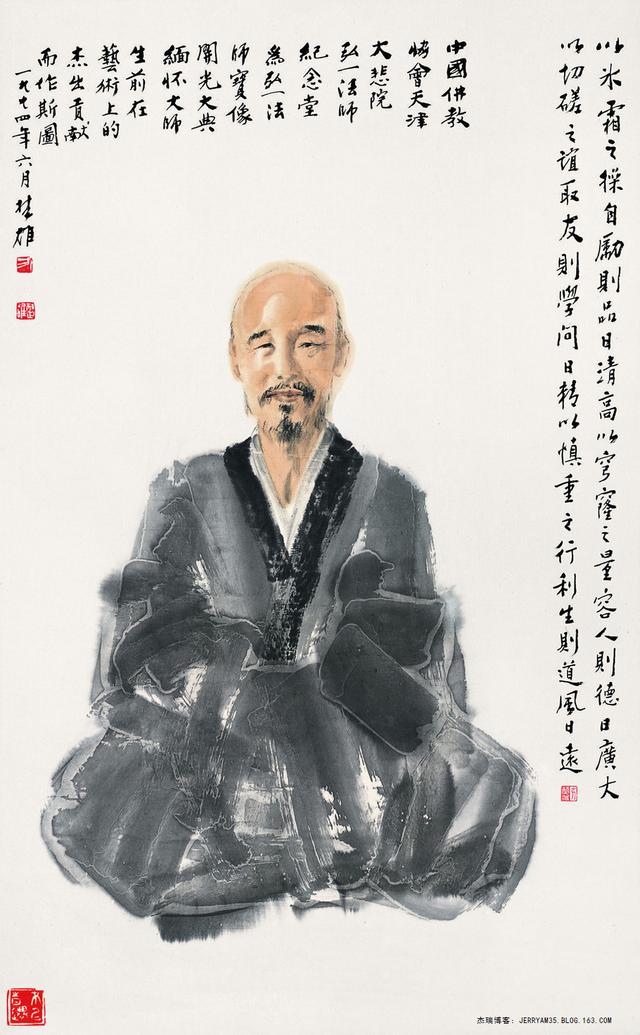 以冰霜之操自勵則品日清高以穹窿之量容人則德日廣大
以切磋之誼取友則學問日精以慎重之行利生則道風日遠
中國佛教
協會天津
大悲院
弘一法師
紀念堂
為弘一法
師寶像
開光大典
緬怀大師
生前在
藝術上的
杰出貢献
而作斯圖
一九九四年六月桂雄
杰瑞博客：JERRYAM35.BLOG.163.COM